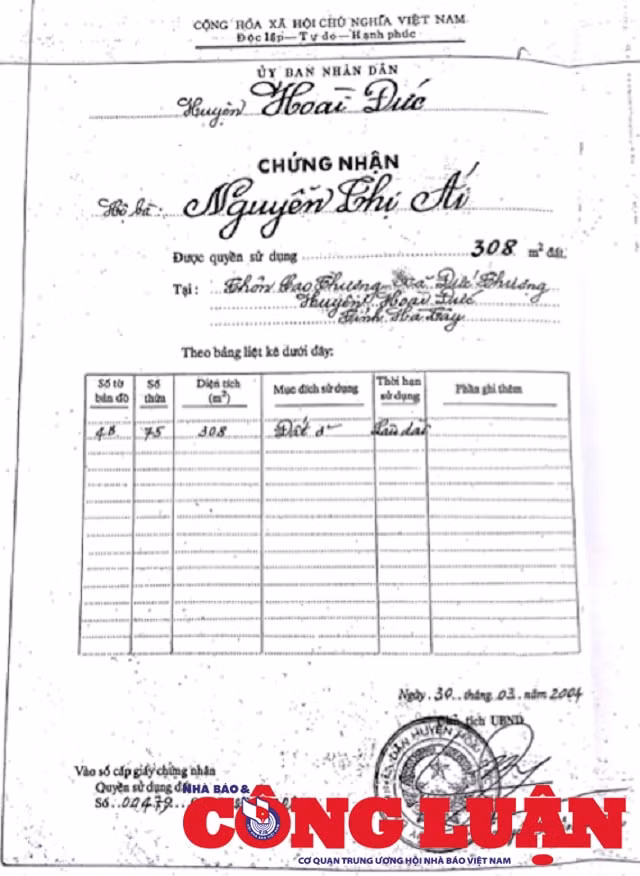 CỘNG HÒA XÃ HỘI CHỦ NGHĨA VIỆT NAM
Độc lập—Tự do—Hạnh phúc
ỦY BAN NHÂN DÂN
Huyện Hoài Đức
CHỨNG NHẬN
Hộ bà: Nguyễn Thị Ái
Được quyền sử dụng 308 m² đất
Tại: Thôn Cao Thượng Xã Đức Thượng
Huyện Hoài Đức
Tỉnh Hà Tây
Theo bảng liệt kê dưới đây:
Số tờ bản đồ Số thửa Diện tích (m²) Mục đích sử dụng Thời hạn sử dụng Phần ghi thêm
48 75 308 Đất ở Lâu dài
Ngày 30 tháng 03 năm 2004
Chủ tịch UBND
DÂN HUYỆN
Vào sổ cấp giấy chứng nhận
Quyền sử dụng đất
Số 00479
NHÀ BÁO &
CÔNG LUẬN
CƠ QUAN TRUNG ƯƠNG HỘI NHÀ BÁO VIỆT NAM